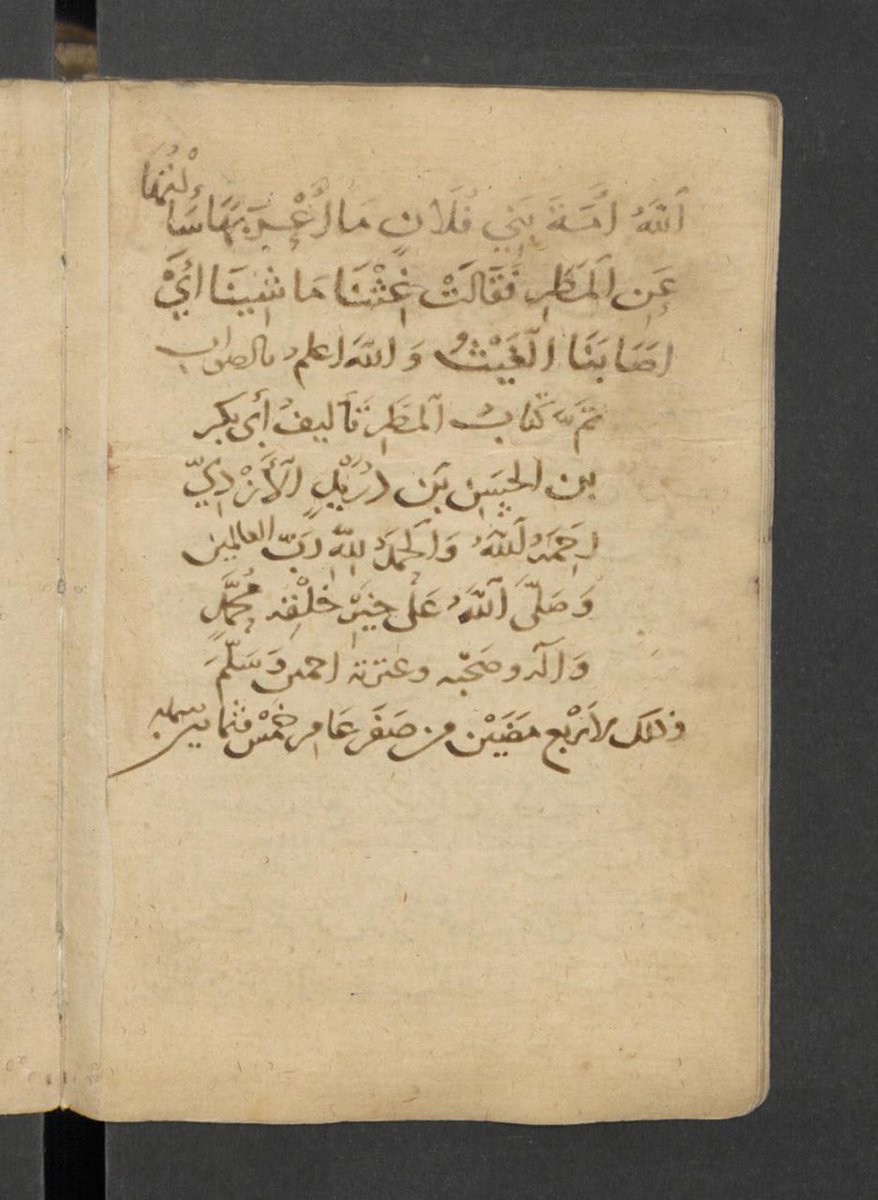 اَللَّهُ اُمَةَ بَنِي فُلَانٍ مَا اُعْرَبَهَا سَأَلْتُهَا
عَنِ اَلْمَطَرِ فَقَالَتْ غِثْنَا مَا شِينَا أَيْ
اصَابَنَا الغَيْثُ وَاللّهَ اعلم بالصواب
تَمَّ كتابُ المَطَرِ تَأليفُ أبي بكر
بن الحسَنِ بَن دُرَيْدٍ اَلْأَزْدِيّ
رَحِمَهُ اَللَّهُ وَالحمدُ لِلّهِ رَبّ العالمين
وَصَلّىَ اَللَّهُ عَلَى خَيْرِ خَلْقِهِ مُحَمَّدٍ
وَآلَه وصَحْبه وعترته اجمعين وَسَلَّمَ
وذلك لأرْبَع مَضَيْن من صَفَر عَام خمْس وثمانين